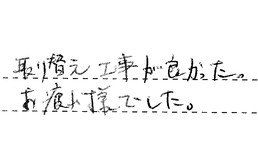 取り替え工事が良かった。
お疲れ様でした。